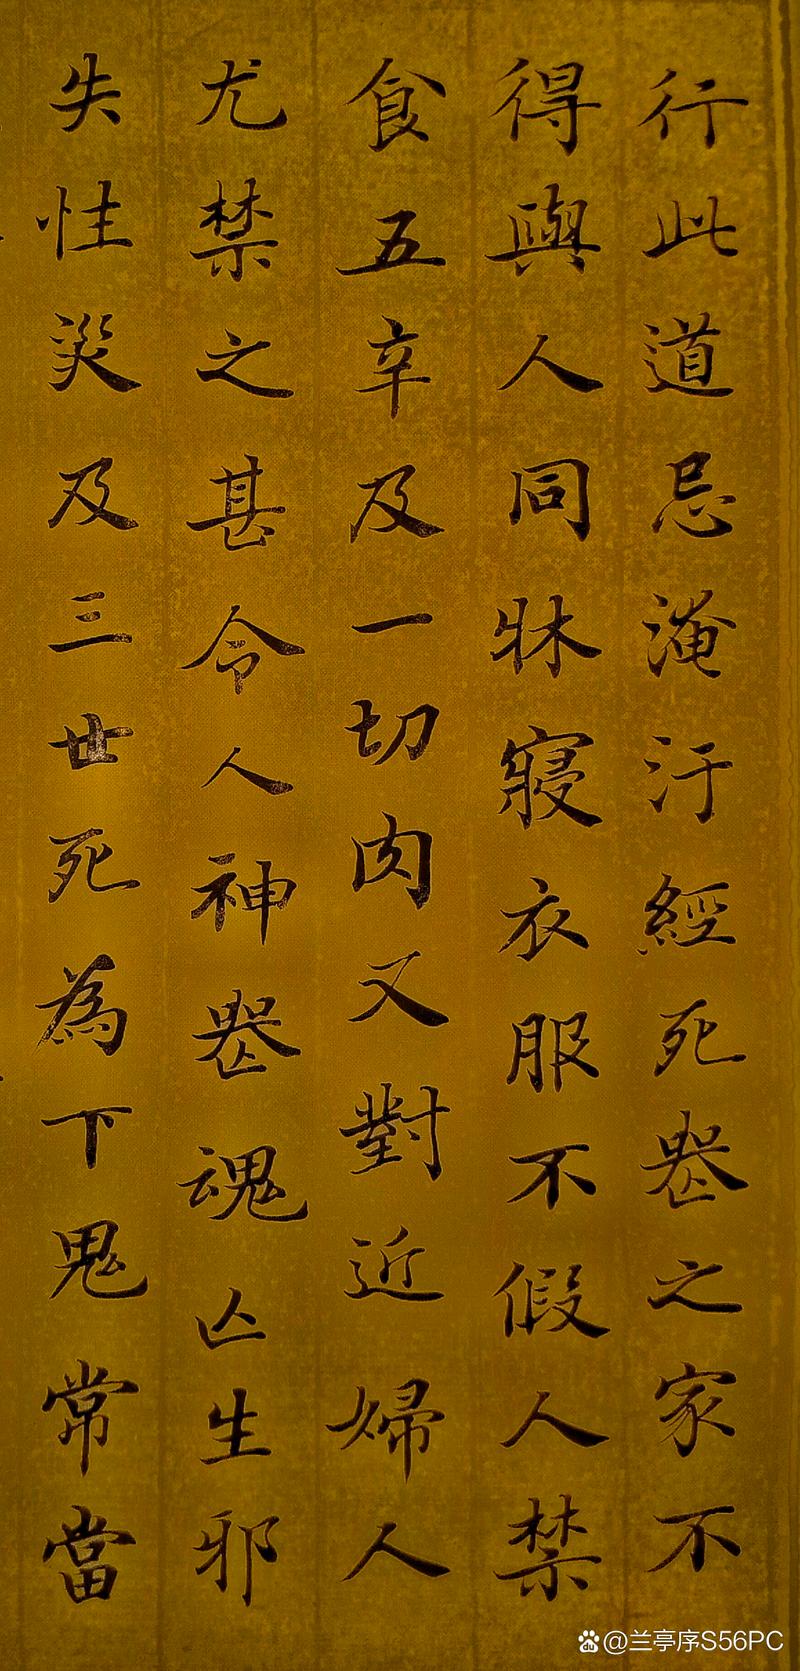 行此道忌淹汙經死喪之家不
得與人同牀寢衣服不假人禁
食五辛及一切肉又對近婦人
尤禁之甚令人神喪魂亡生邪
失性災及三世死為下鬼常當
@兰亭序S56PC